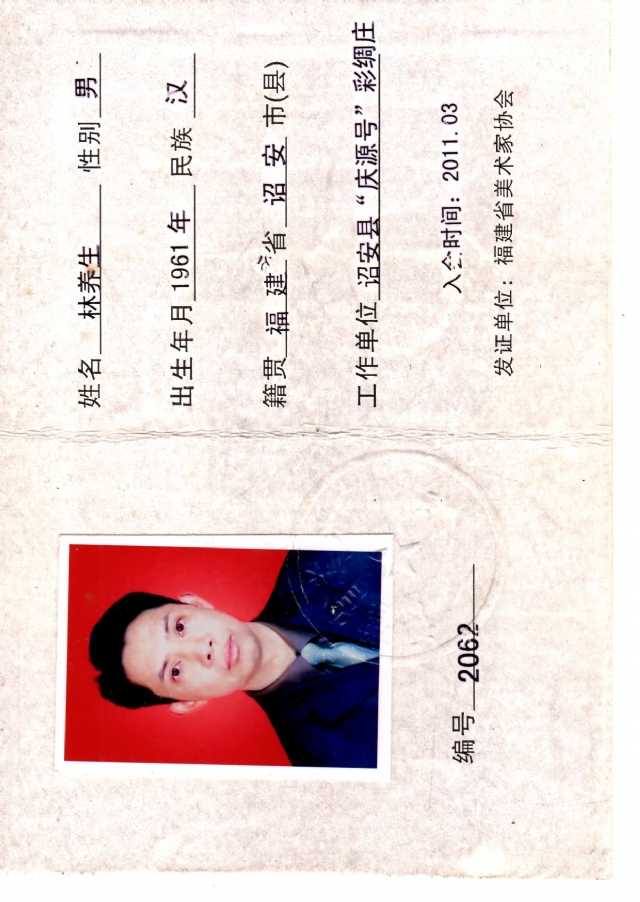 姓名 林养生 性别 男
出生年月 1961年 民族 汉
籍贯 福建省 诏安市(县)
工作单位 诏安县“庆源号”彩绸庄
入会时间：2011.03
发证单位：福建省美术家协会
编号 2062